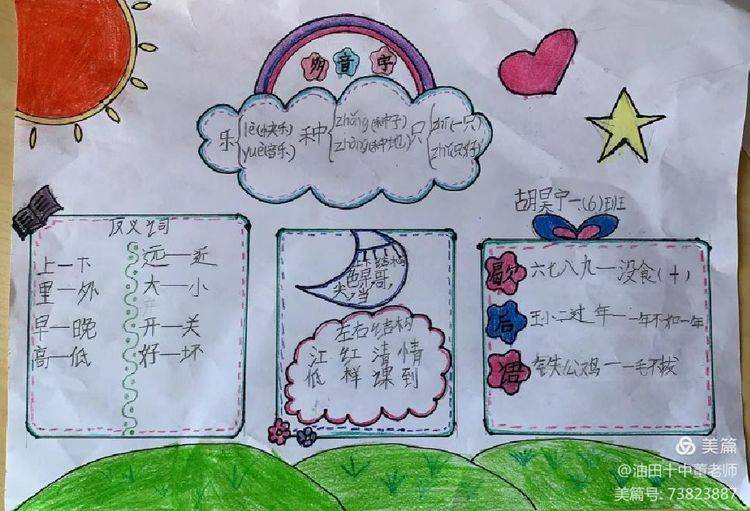 多音字
乐 lè(快乐) yuè(音乐)
种 zhǒng(种子) zhòng(种地)
只 zhī(一只) zhǐ(只好)
胡昊宁一(6)班
反义词
上—下
里—外
早—晚
高—低
远—近
大—小
开—关
好—坏
上下结构
色景哥
尖当
左右结构
江红清情
低样课到
歇后语
六七八九—没食(十)
王小二过年—一年不如一年
铁公鸡—一毛不拔
美篇
@油田十中董老师
美篇号: 73823887